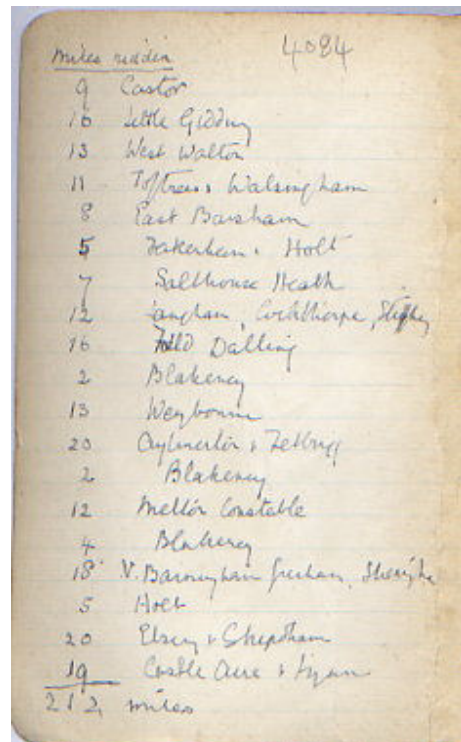 4084
Miles ridden
9 Castor
16 Little Gidding
13 West Walton
11 Toftrees & Walsingham
8 East Barsham
5 Fakenham & Holt
7 Salthouse Heath
12 Langham, Cockthorpe, Stiffkey
16 Field Dalling
2 Blakeney
13 Weybourne
20 Aylmerton & Felbrigg
2 Blakeney
12 Melton Constable
4 Blakeney
18 N. Barningham Gresham,
5 Holt
20 Elsing & Shipdham
19 Castle Acre & Lynn
212 miles